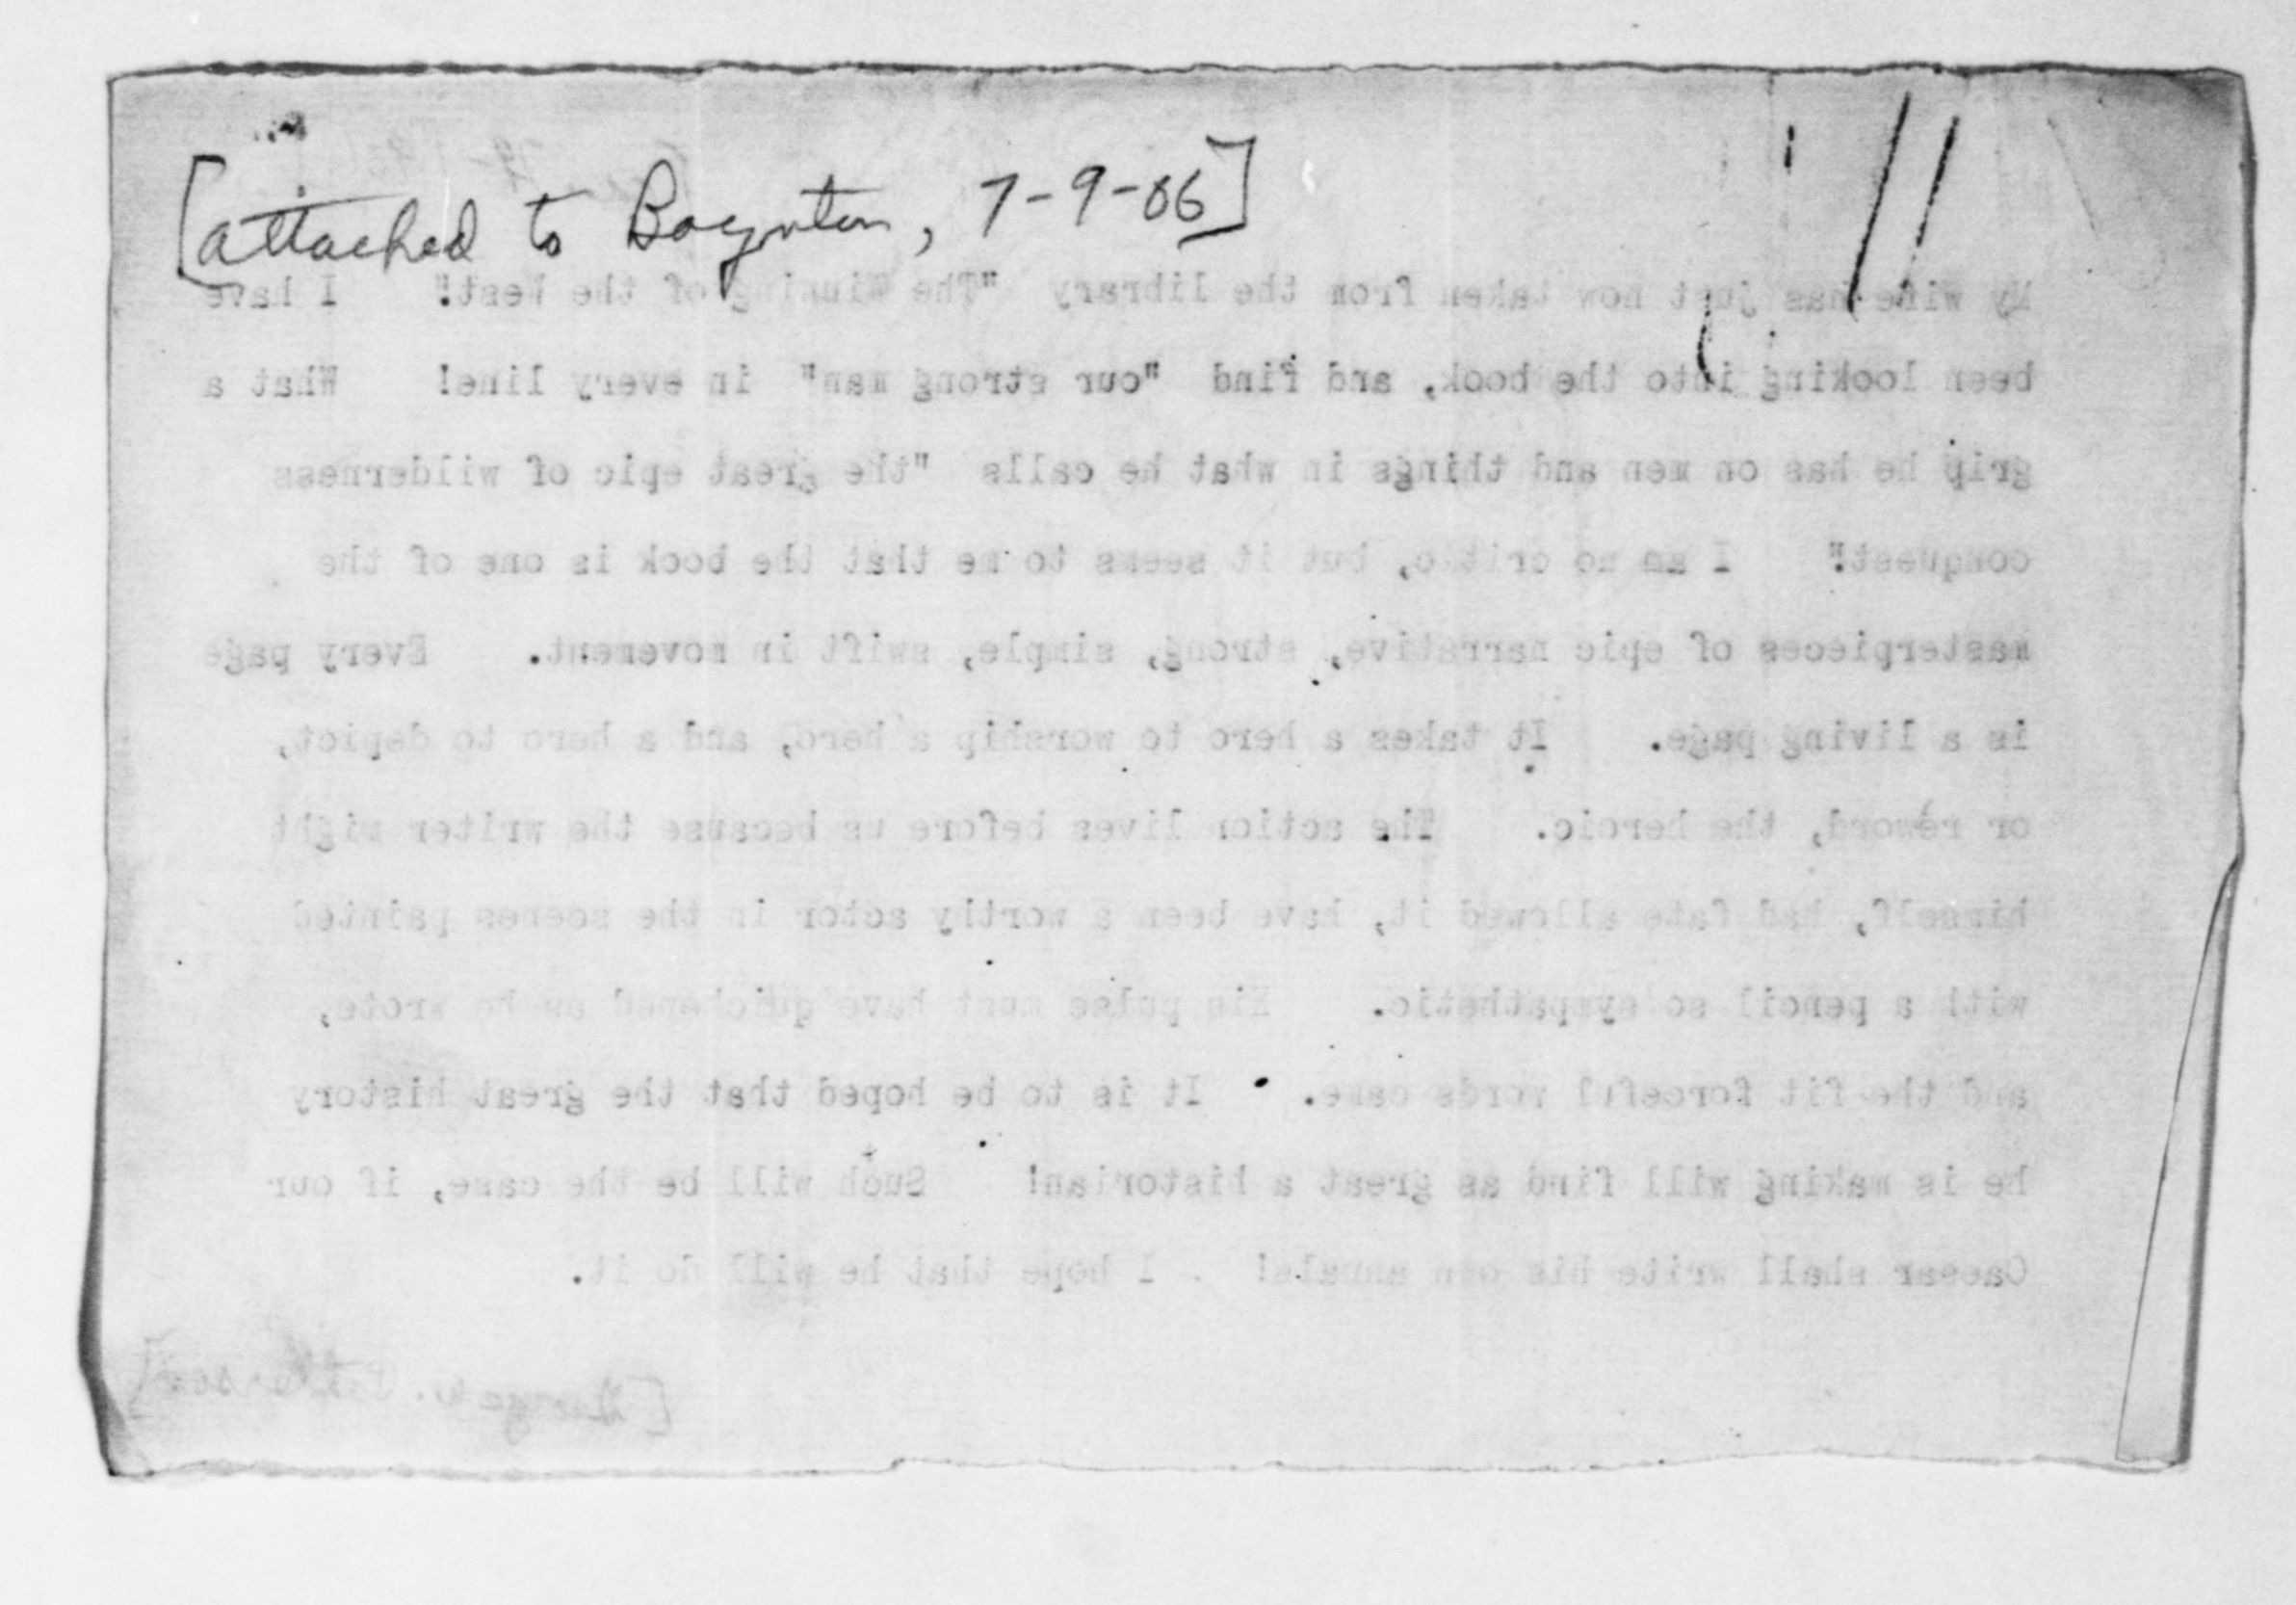 [attached to Boynton, 7-9-06]
My wife has just now taken from the library "The Winning of the West!" I have
been looking into the book, and find "our strong man" in every line! What a
grip he has on men and things in what he calls "the great epic of wilderness
conquest!" I am no critic, but it seems to me that the book is one of the
masterpieces of epic narrative, strong, simple, swift in movement. Every page
is a living page. It takes a hero to worship a hero, and a hero to depict,
or reword, the heroic. The action lives before us because the writer might
himself, had fate allowed it, have been a worthy actor in the scenes painted
with a pencil so sympathetic. His pulse must have quickened as he wrote,
and the fit forceful words came. It is to be hoped that the great history
he is making will find as great a historian! Such will be the case, if our
Caesar shall write his own annals! I hope that he will do it.